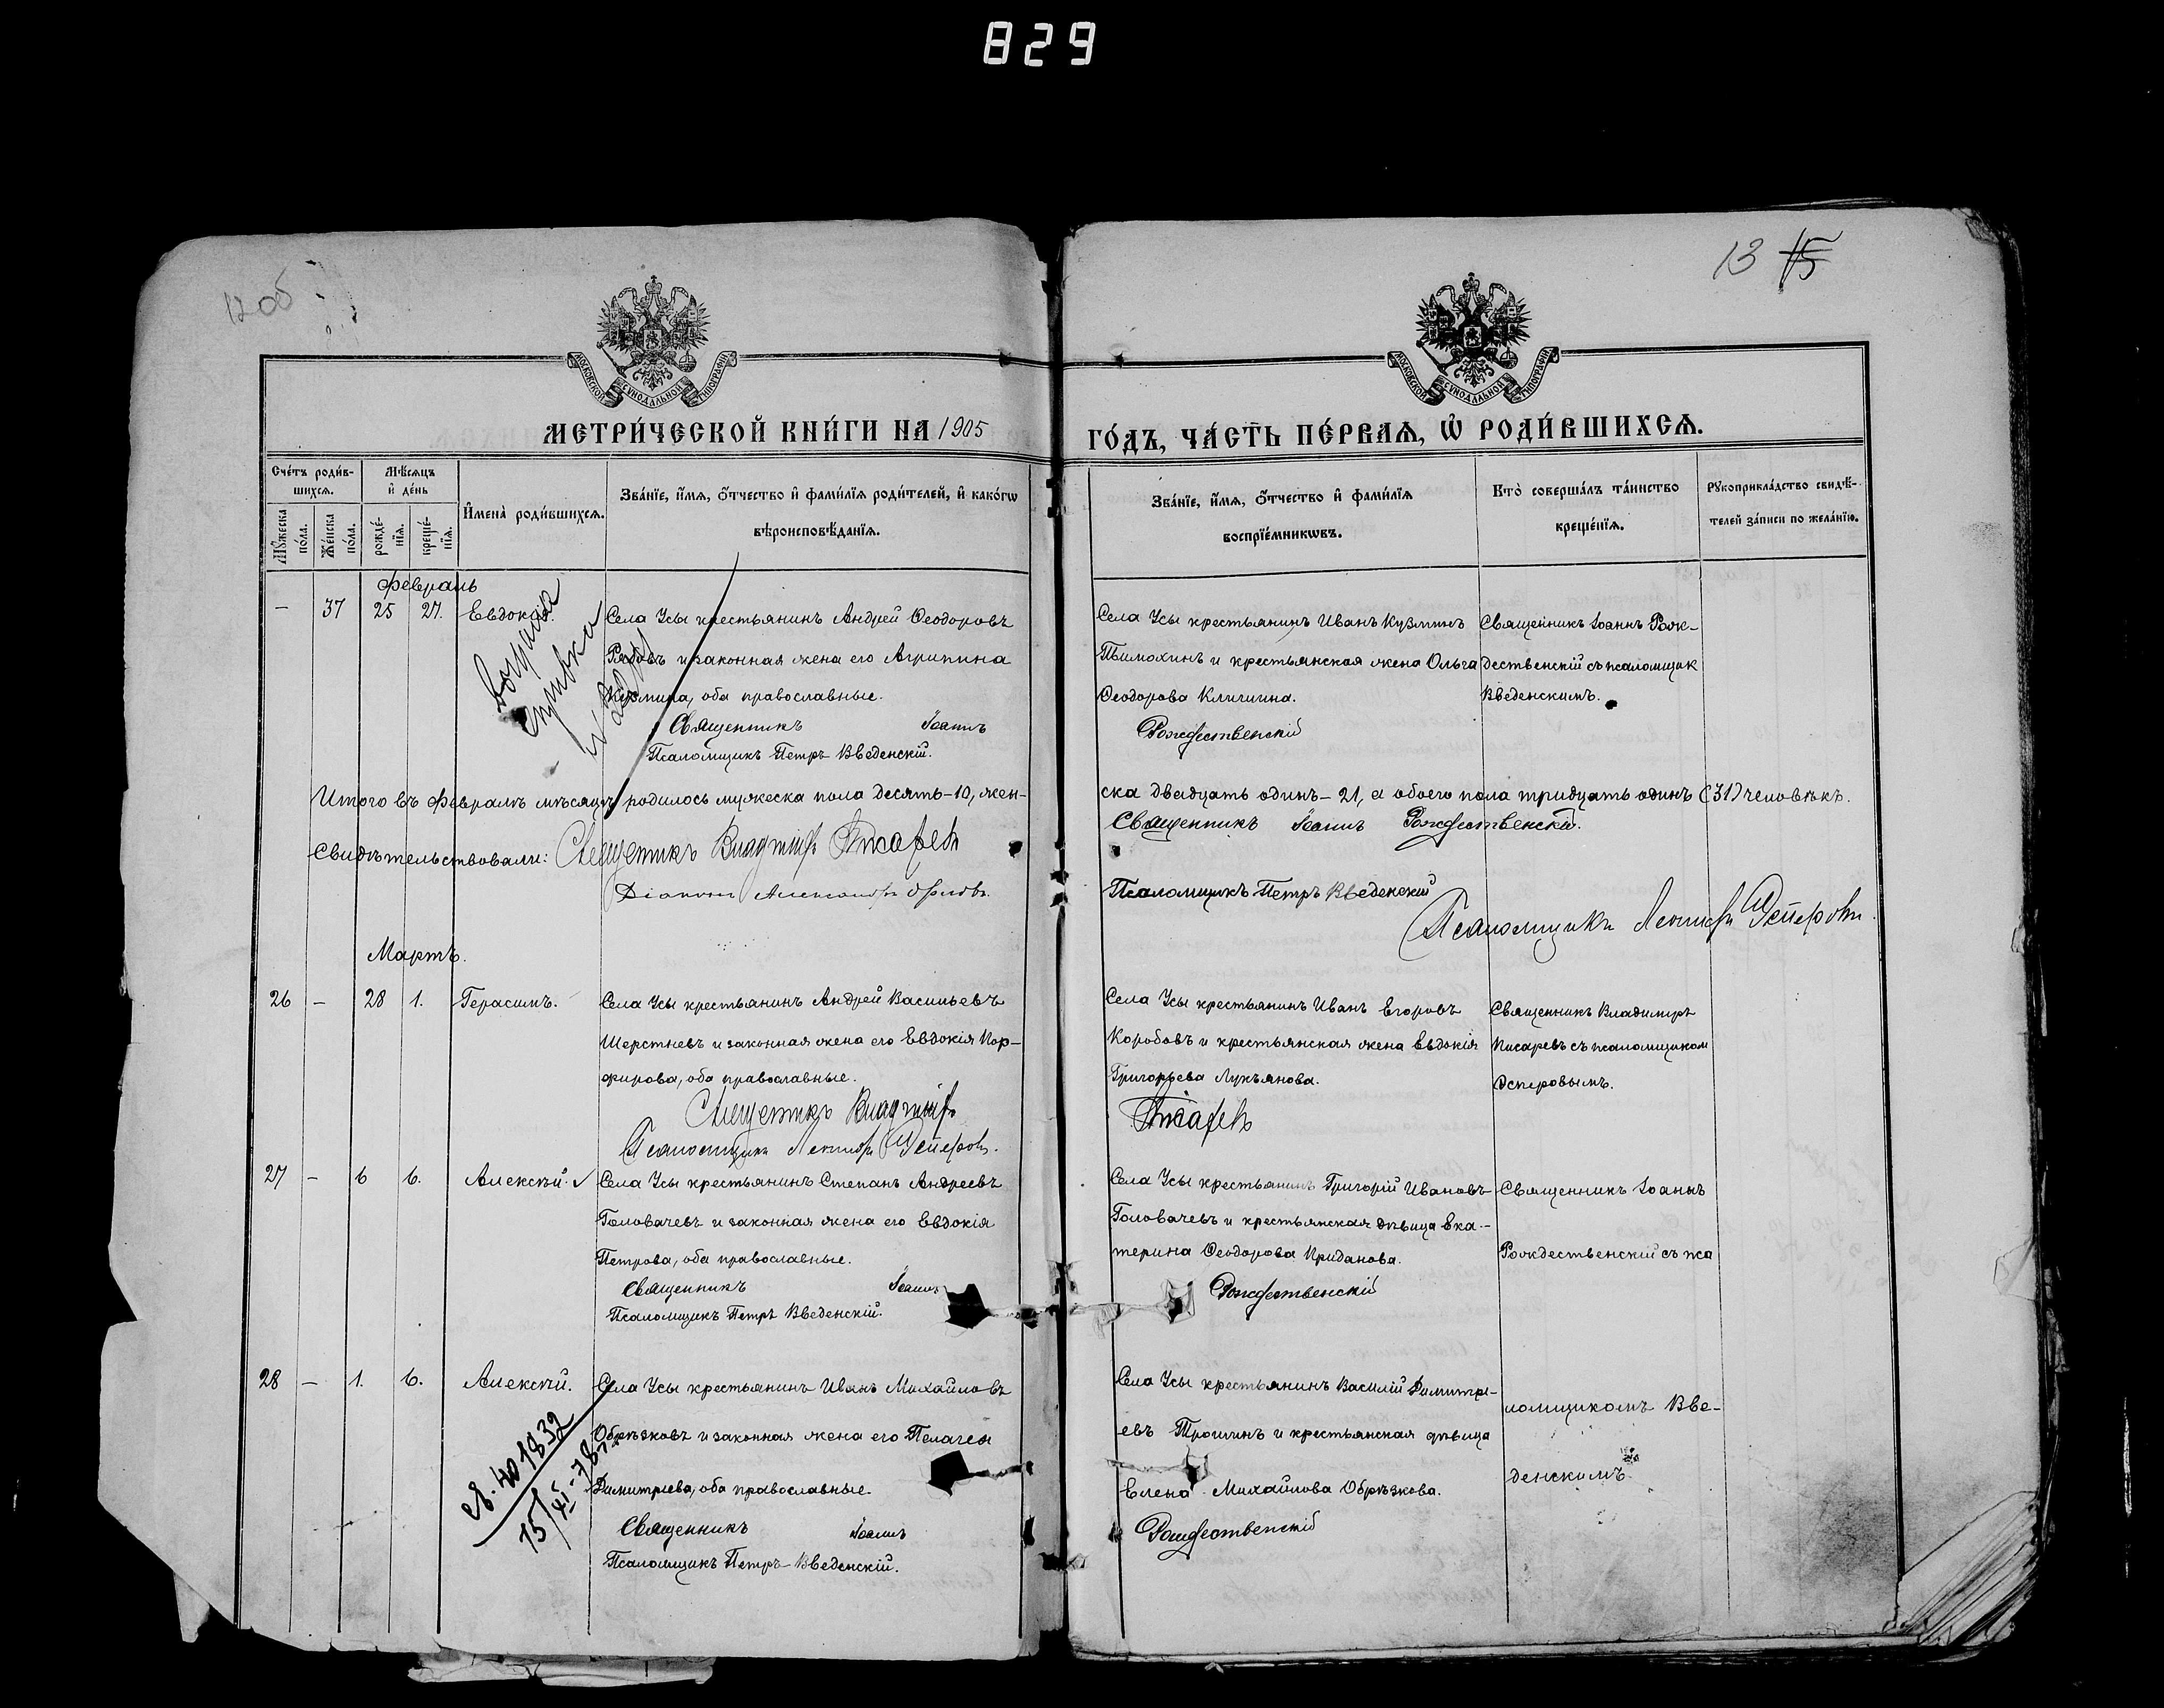 829
12 об
13 15
МОСКОВСКОЙ СѴНОДАЛЬНОЙ ТИПОГРАФІИ
МОСКОВСКОЙ СѴНОДАЛЬНОЙ ТИПОГРАФІИ
МЕТРИ́ЧЕСКОЙ КНИ́ГИ НА 1905
ГО́ДЪ, ЧА́СТЬ ПЕ́РВАЯ, Ѡ РОДИ́ВШИХСЯ.
Сче́тъ роди́в-
шихся.
Мꙋ́жеска по́ла.
Же́нска по́ла.
Мѣ́сяцъ
и де́нь
рожде́-
нїя.
креще́-
нїя.
И҆мена̀ роди́вшихся.
Зва́нїе, и҆́мя, ѻ҆́тчество и҆ фами́лїя роди́телей, и҆ како́гѡ
вѣроисповѣ́данїя.
Зва́нїе, и҆́мя, ѻ҆́тчество и҆ фами́лїя
воспрїе́мникѡвъ.
Кто̀ соверша́лъ та́инство
креще́нїя.
Рꙋкоприкла́дство свидѣ́-
телей за́писи по жела́нїю.
Февраль
— 37 25 27. Евдокія.
Села Усы крестьянинъ Андрей Ѳеодоровъ
и законная жена его Агрипина
Кузмина, оба православные.
Священникъ Іоаннъ
Псаломщикъ Петръ Введенскій.
Села Усы крестьянинъ Иванъ Кузминъ
Тимохинъ и крестьянская жена Ольга
Ѳеодорова Кличина.
Рождественскій
Священникъ Іоаннъ Рож-
дественскій съ псаломщик
Введенскимъ.
Выдана
справка
Итого въ Февралѣ мѣсяцѣ родилось мужеска пола десять-10, жен-
ска двадцать одинъ-21, а обоего пола тридцать одинъ (31) человѣкъ.
Священникъ Іоаннъ Рождественскій.
Свидѣтельствовали: Священникъ Владиміръ Писаревъ
Діаконъ Александръ Орловъ.
Псаломщикъ Петръ Введенскій
Псаломщикъ Леонидъ Эсперовъ.
Мартъ.
26 — 28 1. Герасимъ.
Села Усы крестьянинъ Андрей Васильевъ
Шерстневъ и законная жена его Евдокія Пор-
фирова, оба православные.
Священникъ Владиміръ
Псаломщикъ Леонидъ Эсперовъ.
Села Усы крестьянинъ Иванъ Егоровъ
Коробовъ и крестьянская жена Евдокія
Григорьева Лукьянова.
Писаревъ
Священникъ Владиміръ
Писаревъ съ псаломщиком
Эсперовымъ.
27 — 6 6. Алексѣй.
Села Усы крестьянинъ Степанъ Андреевъ
Головачевъ и законная жена его Евдокія
Петрова, оба православные.
Священникъ Іоаннъ
Псаломщикъ Петръ Введенскій.
Села Усы крестьянинъ Григорій Ивановъ
Головачевъ и крестьянская дѣвица Ека-
терина Ѳеодорова Приданова.
Рождественскій
Священникъ Іоаннъ
Рождественскій съ пса
28 — 1. 6. Алексѣй.
Села Усы крестьянинъ Иванъ Михайловъ
Обрѣзковъ и законная жена его Пелагея
Димитріева, оба православные.
Священникъ Іоаннъ
Псаломщикъ Петръ Введенскій.
Села Усы крестьянинъ Василій Димитрі-
евъ Трошинъ и крестьянская дѣвица
Елена Михайлова Обрѣзкова.
Рождественскій
ломщикомъ Вве-
денскимъ.